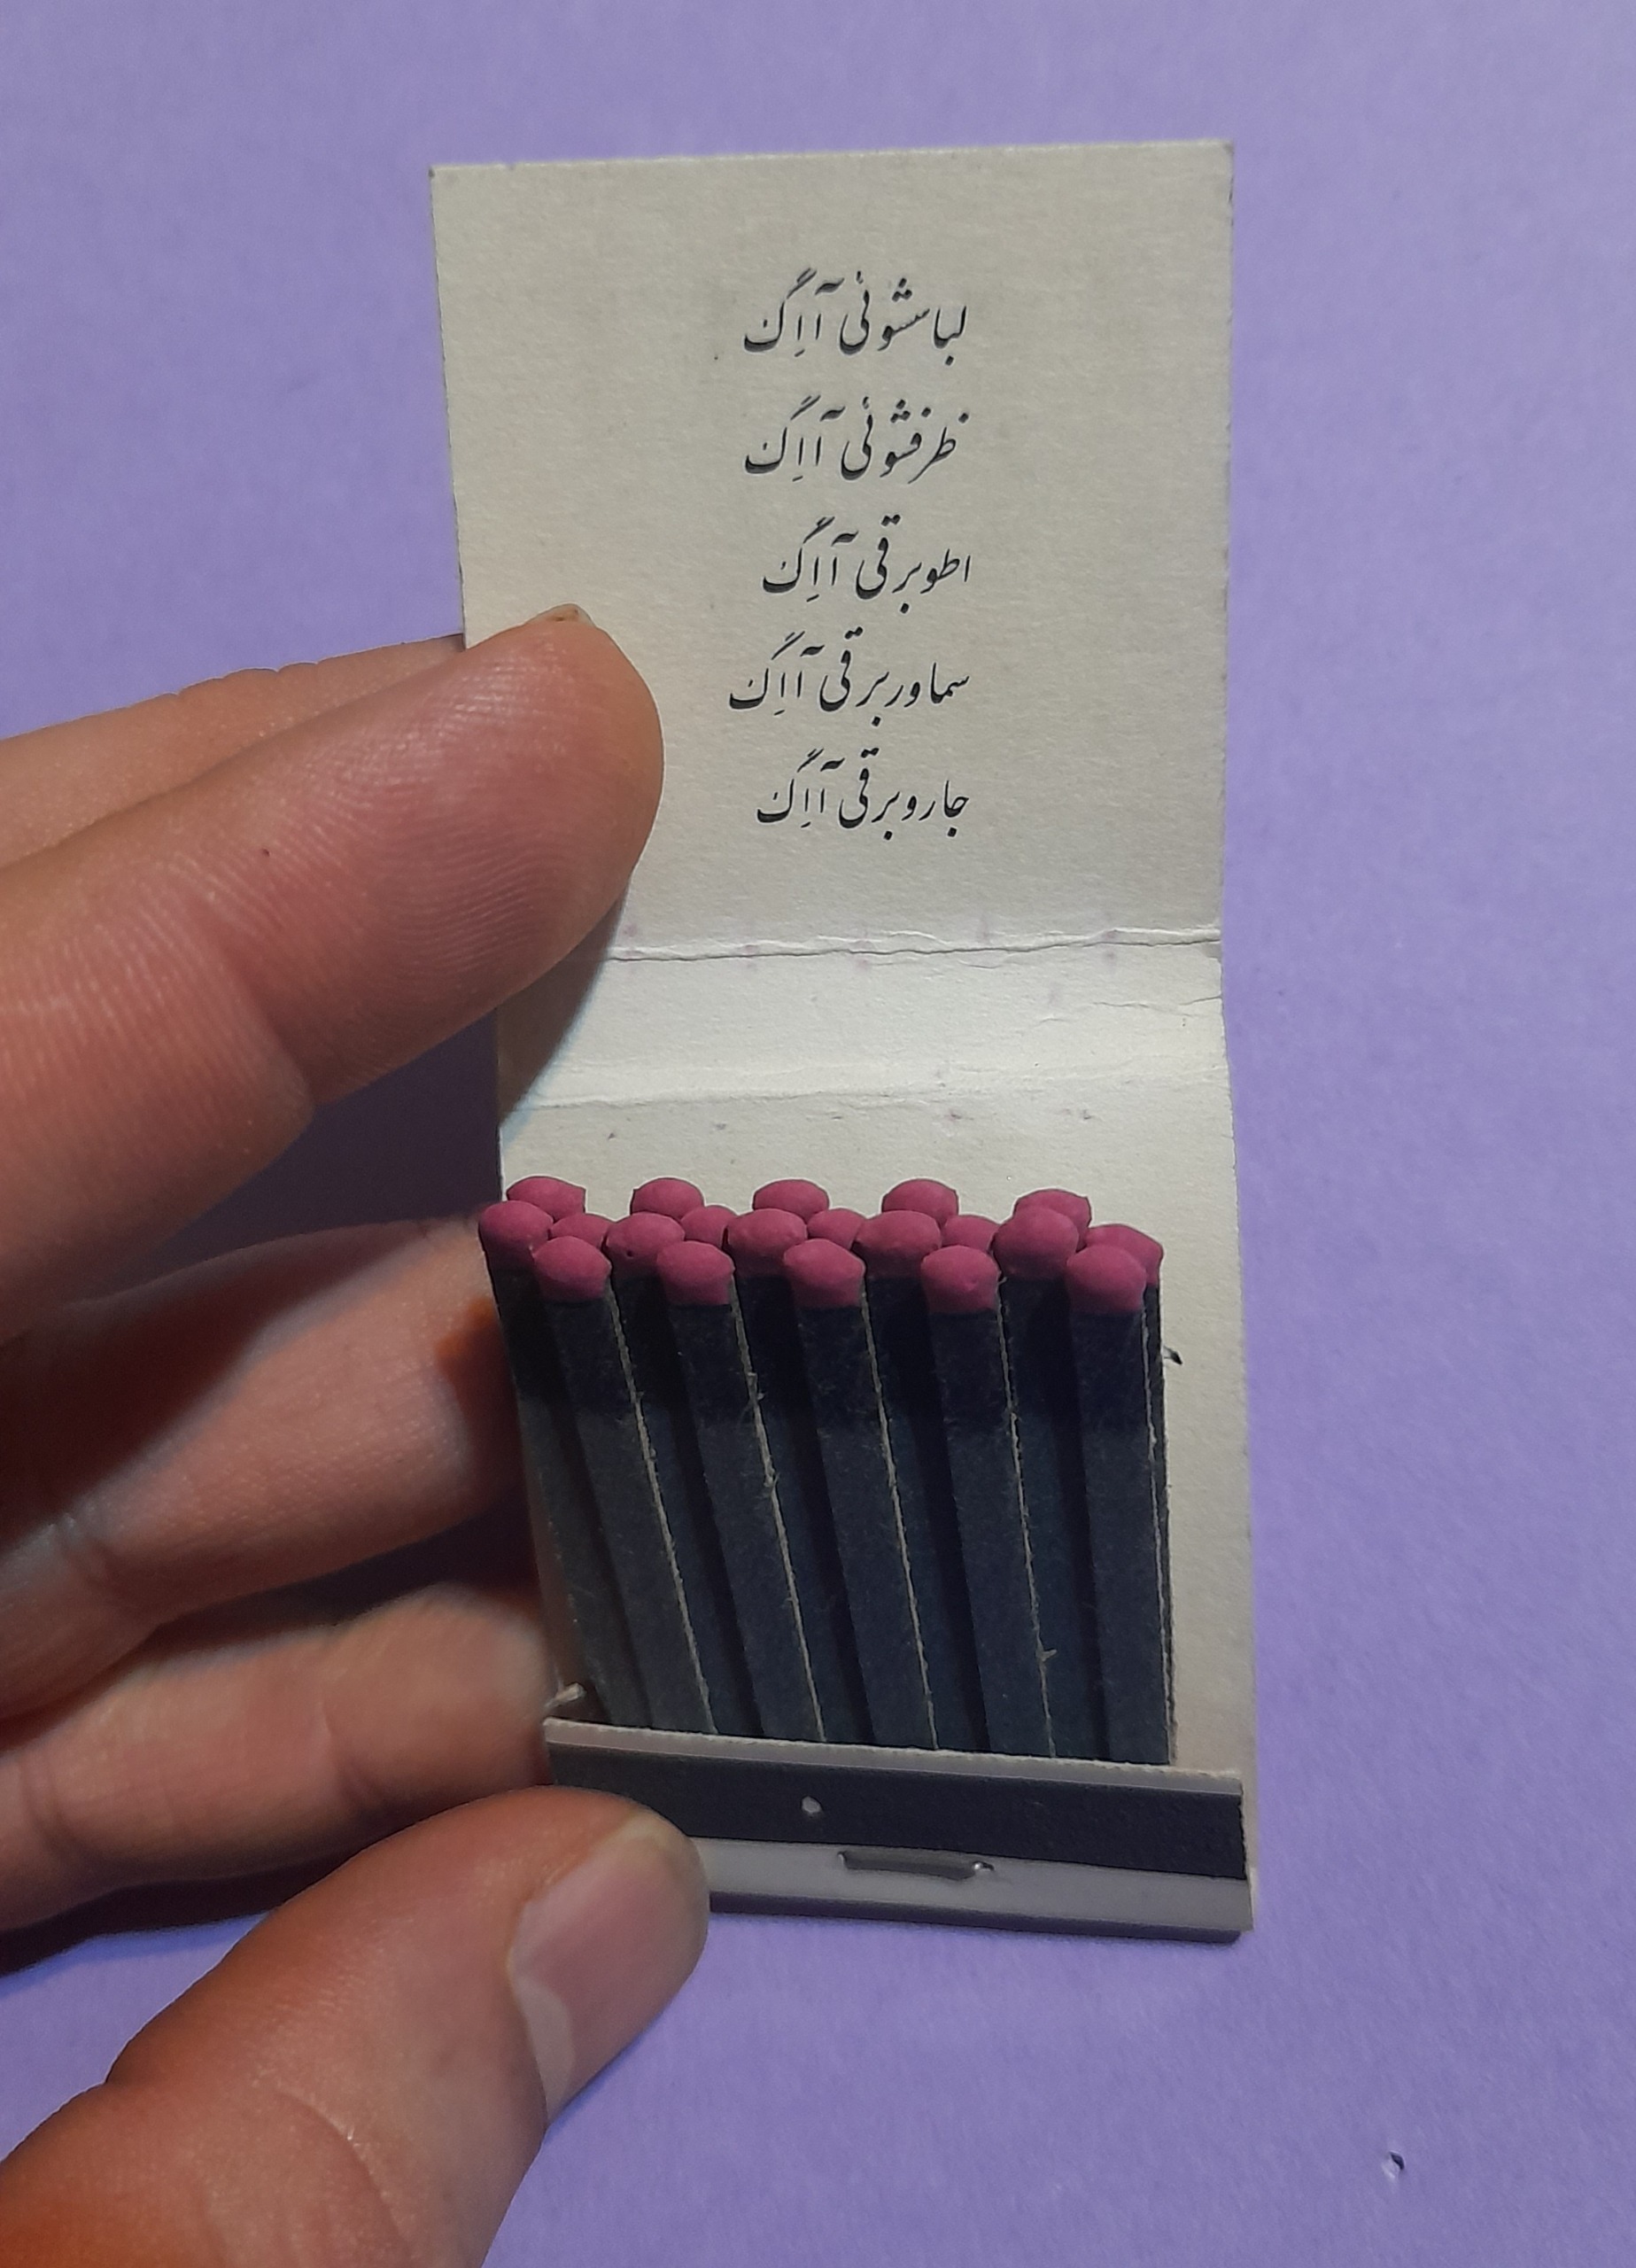 لباسشوئی آ اِ گ
ظرفشوئی آ اِ گ
اطوبرقی آ اِ گ
سماوربرقی آ اِ گ
جاروبرقی آ اِ گ